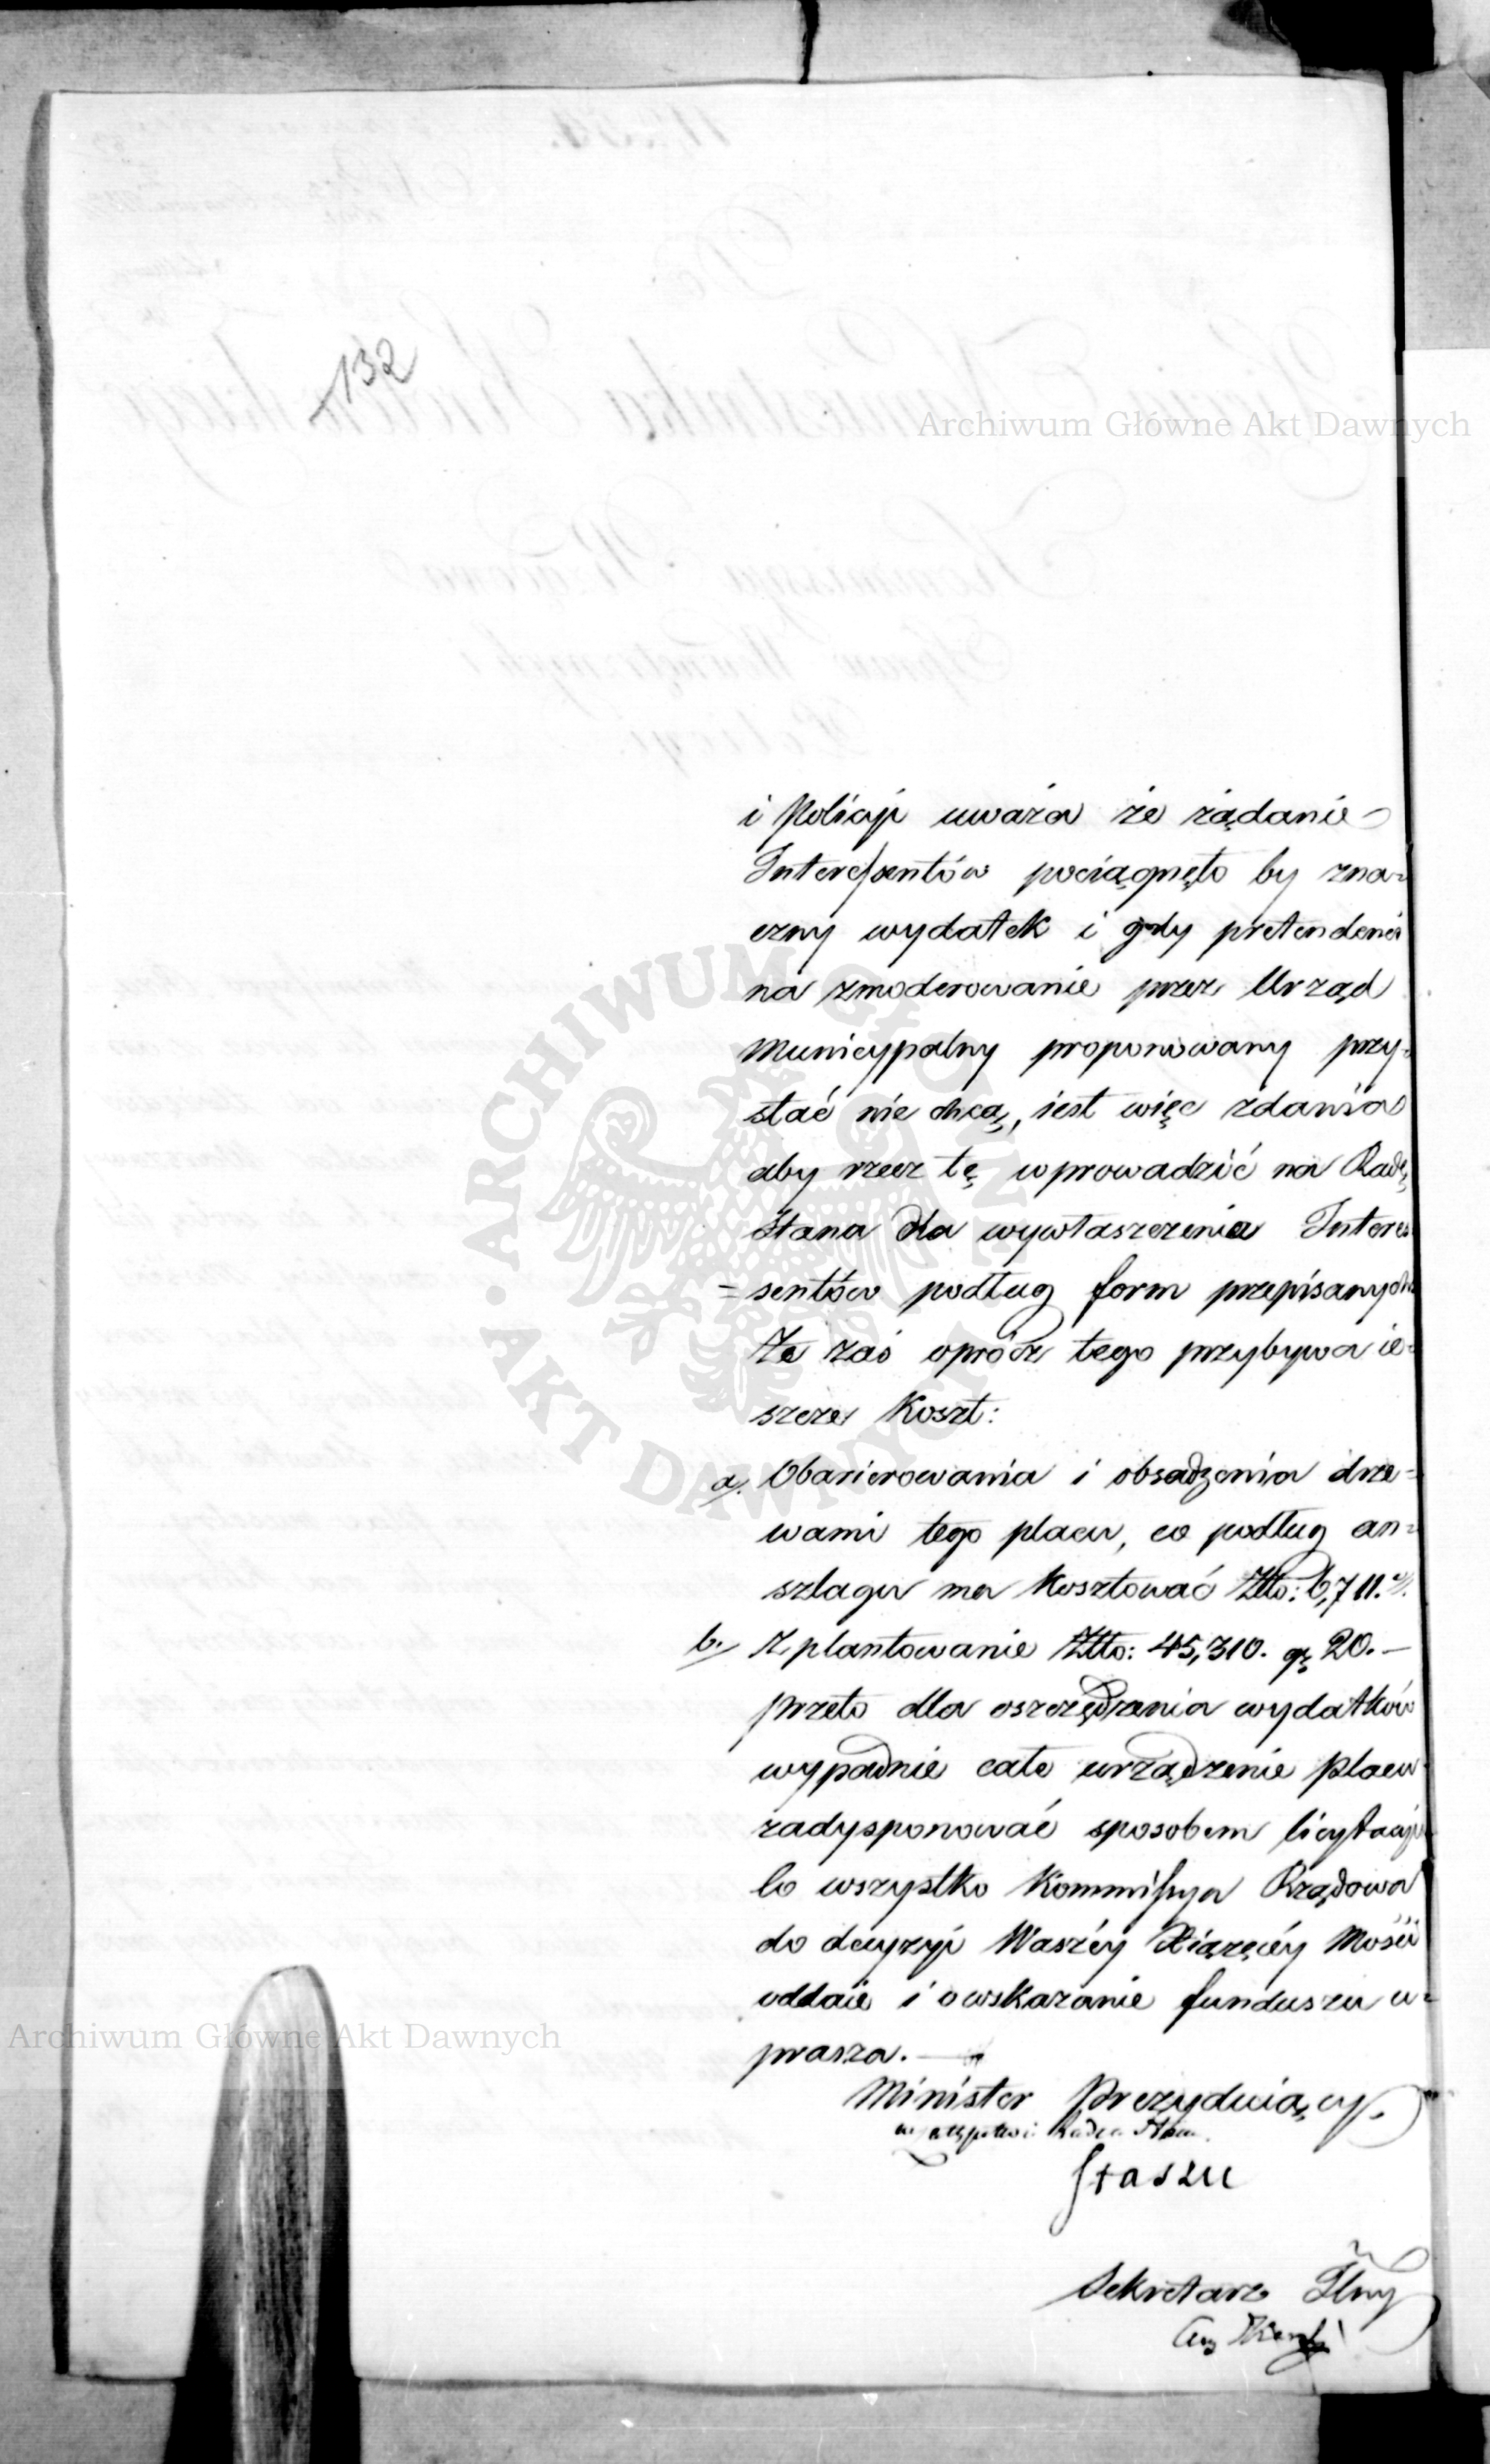 132
i Policyi uważa że żądanie
Interessentów pociągnęło by zna=
czny wydatek i gdy pretendenci
na zmoderowanie przez Urząd
Municypalny proponowany przy=
stać nie chcą, iest więc zdania
aby rzecz tę wprowadzić na Radę
Stanu dla wywłaszczenia Interes
=sentów podług form przepisanych
Że zaś oprócz tego przybywa ie=
szcze Koszt:
a/. Obarierowania i obsadzenia drze=
wami tego placu, co podług an=
szlagu ma kosztować Złło: 6,711.
b./ Zplantowanie Złło: 45,310. gr 20.—
przeto dla oszczędzenia wydatków
wypadnie całe urządzenie placu
zadysponować sposobem licytacyi
to wszystko Kommissya Rządowa
do decyzyi Waszéy Xiążęcéy Mości
oddaie i o wskazanie funduszu u=
prasza.—
Minister Prezyduiący.
w zastępstwie Radca Stanu
Staszic
Sekretarz Jlny
Archiwum Główne Akt Dawnych
Archiwum Główne Akt Dawnych
ARCHIWUM GŁÓWNE
AKT DAWNYCH